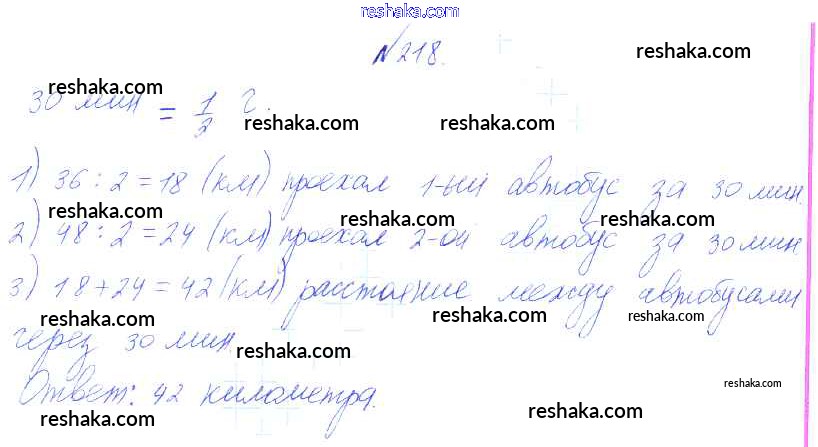 reshaka.com
№218.
reshaka.com
reshaka.com
30 мин = 1/2 г.
reshaka.com
reshaka.com
1) 36 : 2 = 18 (км) проехал 1-ый автобус за 30 мин.
reshaka.com
reshaka.com
reshaka.com
2) 48 : 2 = 24 (км) проехал 2-ой автобус за 30 мин
reshaka.com
3) 18 + 24 = 42 (км) расстояние между автобусами
reshaka.com
reshaka.com
reshaka.com
через 30 мин.
reshaka.com
reshaka.com
Ответ: 42 километра.
reshaka.com
reshaka.com